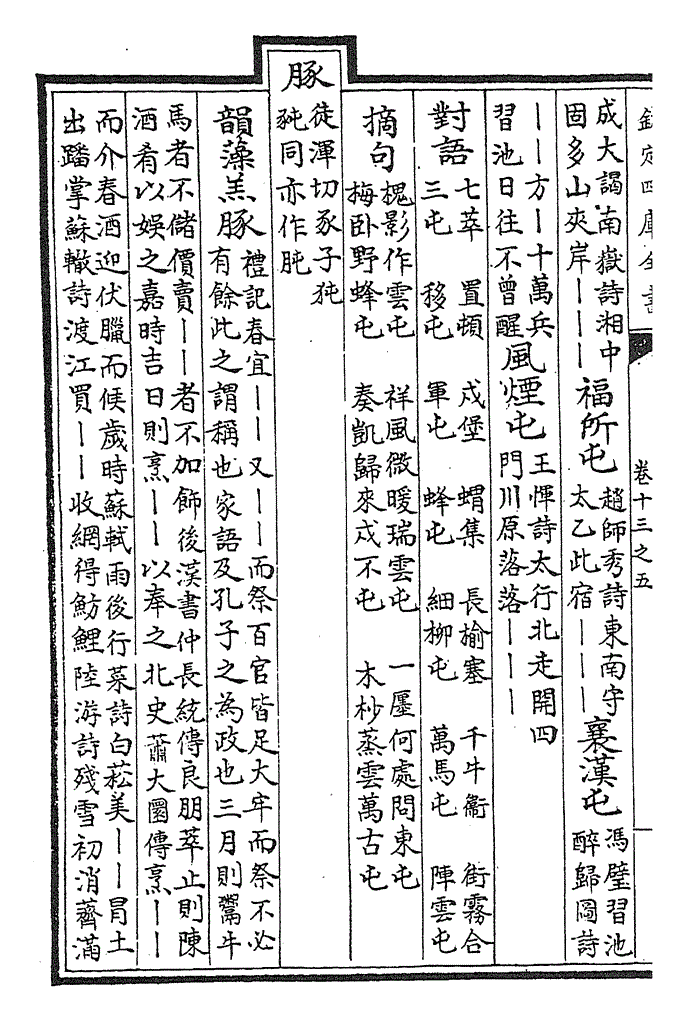 欽定四庫全書
卷十三之五
成大謁南嶽詩湘中
固多山夾岸丨丨丨
福所屯
趙師秀詩東南守
太乙此宿丨丨丨
襄漢屯
馮璧習池
醉歸圖詩
丨丨方丨十萬兵
習池日往不曾醒
風煙屯
王惲詩太行北走開四
門川原落落丨丨丨
對語
七萃 置頓 戍堡 蝟集 長榆塞 千牛衞 街霧合
三屯 移屯 軍屯 蜂屯 細柳屯 萬馬屯 陣雲屯
摘句
槐影作雲屯 祥風微暖瑞雲屯 一廛何處問東屯
梅卧野蜂屯 奏凱歸來戍不屯 木杪蒸雲萬古屯
豚
徒渾切豕子㹠
豘同亦作肫
韻藻
羔豚
禮記春宜丨丨又丨丨而祭百官皆足大牢而祭不必
有餘此之謂稱也家語及孔子之為政也三月則鬻牛
馬者不儲價賣丨丨者不加飾後漢書仲長統傳良朋萃止則陳
酒肴以娛之嘉時吉日則烹丨丨以奉之北史蕭大圜傳烹丨丨
而介春酒迎伏臘而候歲時蘇軾雨後行菜詩白菘美丨丨冒土
出蹯掌蘇轍詩渡江買丨丨收網得魴鯉陸游詩殘雪初消薺滿